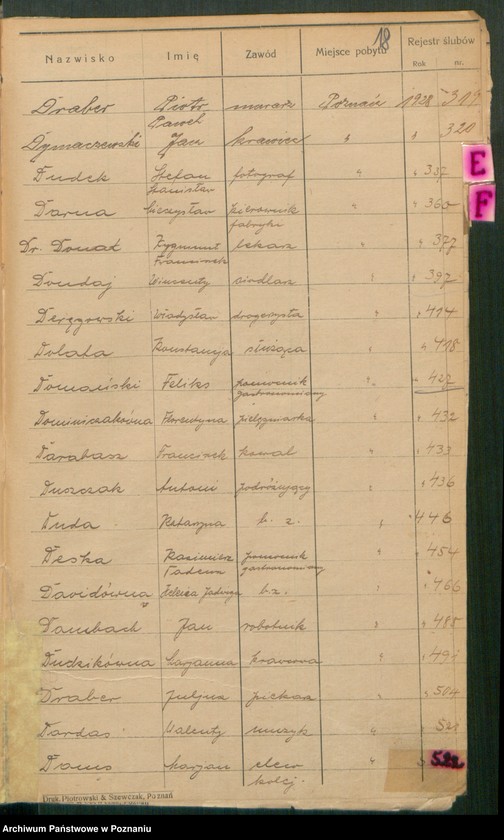 18
Nazwisko Imię Zawód Miejsce pobytu Rejestr ślubów
Rok nr.
Draber Piotr Paweł murarz Poznań 1928 319
Dymaczewski Jan krawiec " " 320
E
Dudek Stefan Stanisław fotograf " " 337
F
Darna Mieczysław kierownik fabryki " " 360
Dr. Donat Zygmunt Franciszek lekarz " " 377
Doudaj Wincenty siodlarz " " 397
Deręgowski Władysław drogerzysta " " 414
Dolata Konstancja służąca " " 418
Domański Feliks pracownik gastronomiczny " " 427
Dominiczakówna Florentyna pielęgniarka " " 432
Darabasz Franciszek kowal " " 433
Duszczak Antoni podróżujący " " 436
Duda Katarzyna b. z. " " 446
Deska Kazimierz Tadeusz pracownik gastronomiczny " " 454
Davidówna Helena Jadwiga b.z. " " 466
Dambach Jan robotnik " " 485
Dudzikówna Marjanna krawcowa " " 491
Draber Juljan piekarz " " 504
Dardas Walenty muzyk " "
Marjan elew kolej. " "
Druk. Piotrowski & Szewczak, Poznań
Archiwum Państwowe w Poznaniu